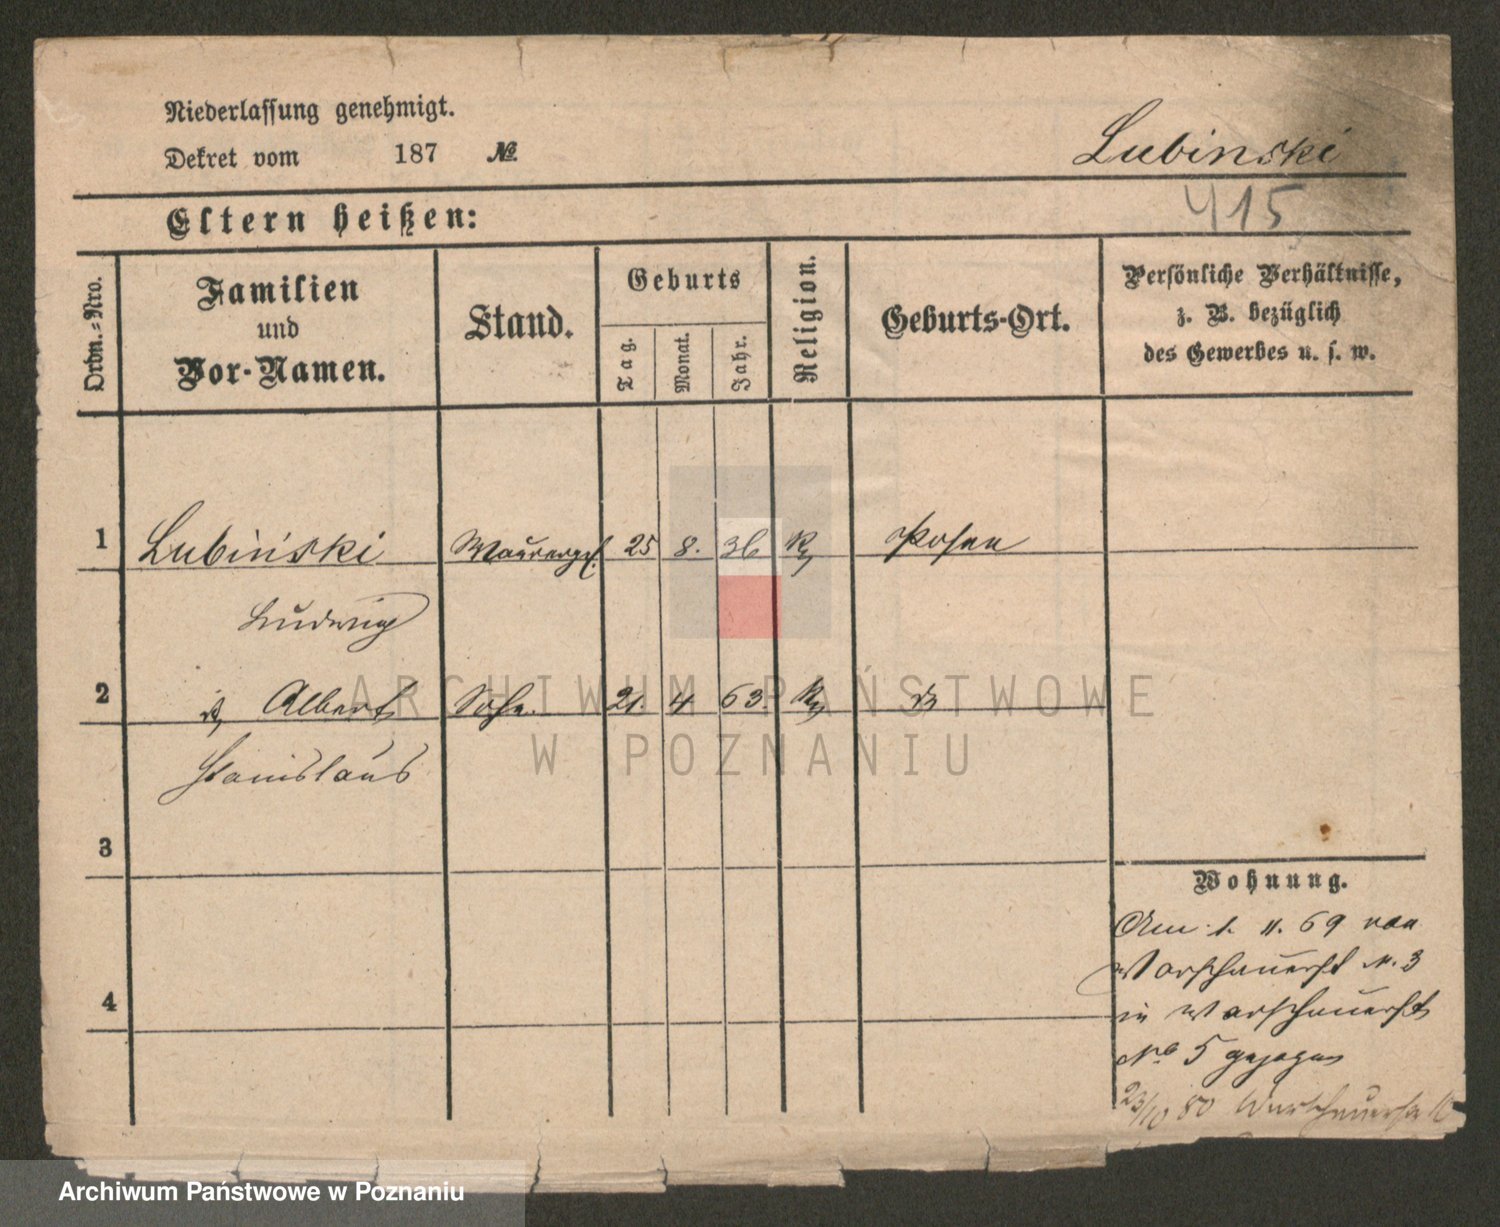 Niederlassung genehmigt.
Dekret vom 187 No
Lubinski
415
Eltern heißen:
Ordn.-Nro.
Familien
und
Vor-Namen.
Stand.
Geburts
Tag.
Monat.
Jahr.
Religion.
Geburts-Ort.
Persönliche Verhältnisse,
z. B. bezüglich
des Gewerbes u. s. w.
1 Lubiński Maurerges. 25 8. 36 Posen
Ludwig
2 Albert Sohn. 21. 4. 63.
Stanislaus
3
4
Wohnung.
Am 1. 11. 69 von
Warschauerst N. 3
in Warschauerst
No 5 gezogen
23/10 80 Warschauerstr
ARCHIWUM PAŃSTWOWE
W POZNANIU
Archiwum Państwowe w Poznaniu